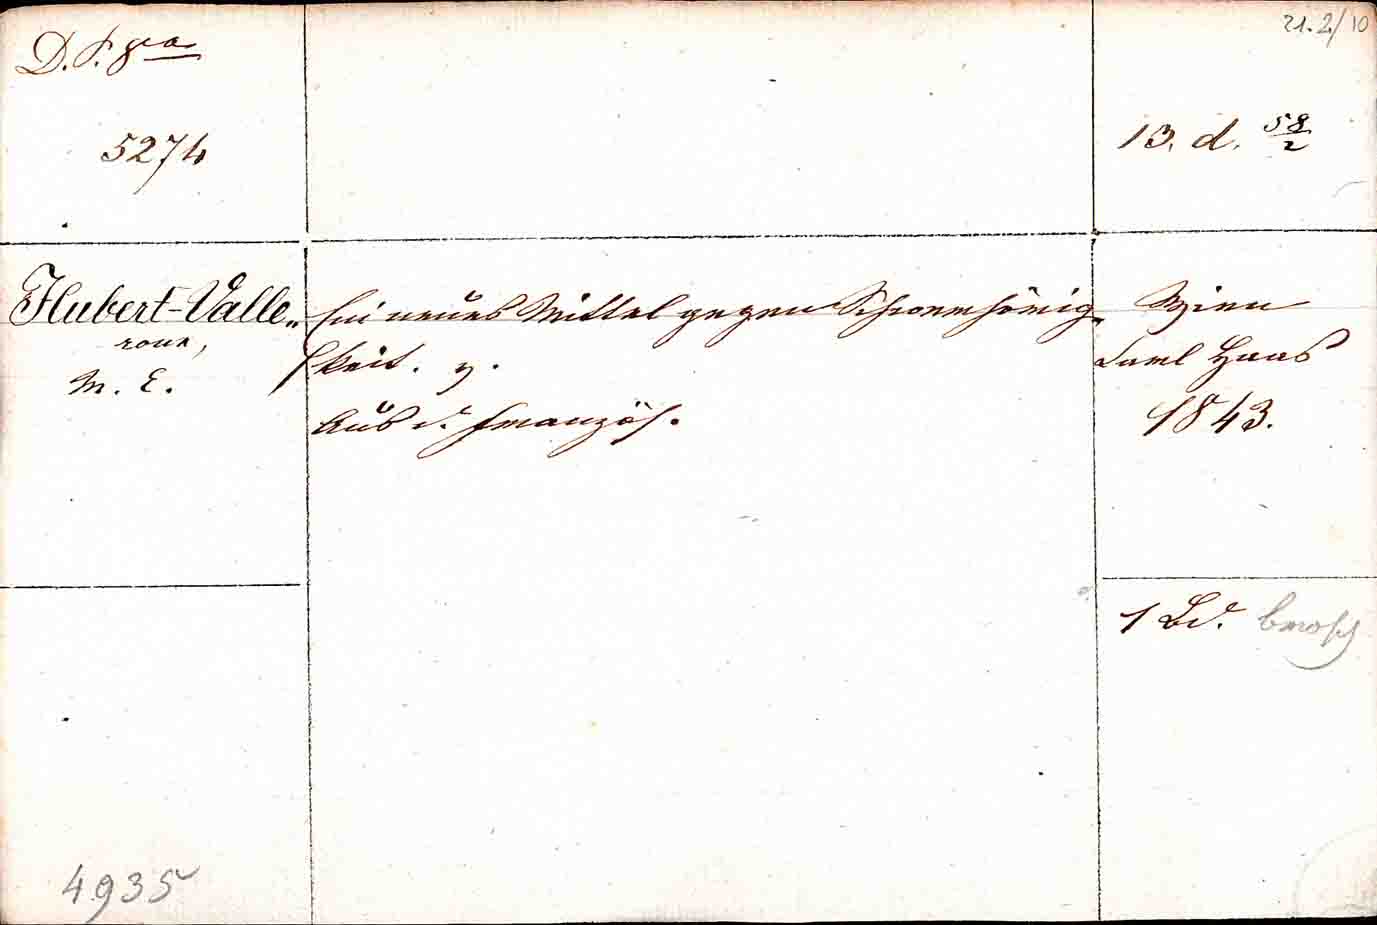 D. P. gra
21. 2/10
5274
13. d. 58/2
Hubert-Valle„
roux,
M. E.
Ein neues Mittel gegen Schwerhörig„
keit. η.
Aus d. Französ.
Wien
Carl Haas
1843.
1 Bd. brosch
4935